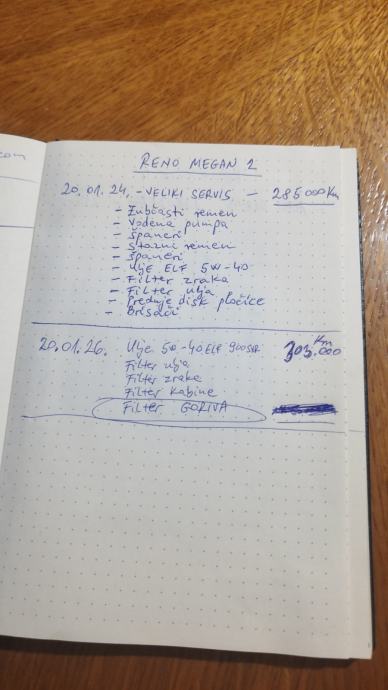 com
RENO MEGAN 2
20.01.24. - VELIKI SERVIS - 285000 Km
- Zubčasti remen
- Vodena pumpa
- Španeri
- Stazni remen
- Španeri
- Ulje ELF 5W-40
- Filter zraka
- Filter ulja
- Prednje disk pločice
- Brisači
20.01.26. Ulje 5W-40 ELF 900 303.000 Km
Filter ulja
Filter zraka
Filter kabine
Filter GORIVA